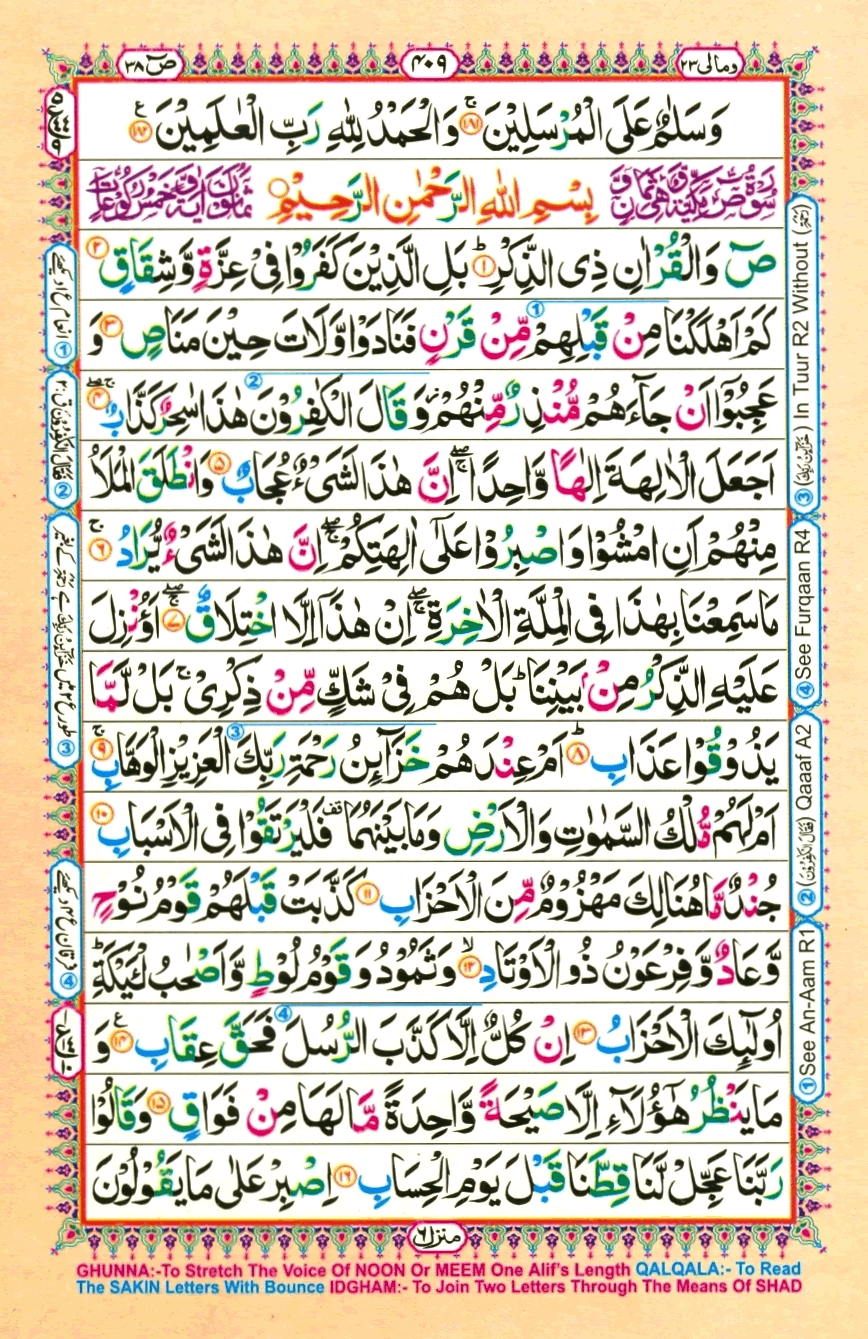 ومالی ۲۳
۴۰۹
صٓ ۳۸
وَسَلٰمٌ عَلَى الْمُرْسَلِيْنَ ۚ﴿۱۸۱﴾ وَالْحَمْدُ لِلّٰهِ رَبِّ الْعٰلَمِيْنَ ﴿۱۸۲﴾ ع
بِسْمِ اللّٰهِ الرَّحْمٰنِ الرَّحِيْمِ
صٓ وَالْقُرْاٰنِ ذِى الذِّكْرِ ؕ﴿۱﴾ بَلِ الَّذِيْنَ كَفَرُوْا فِىْ عِزَّةٍ وَّشِقَاقٍ ﴿۲﴾
كَمْ اَهْلَكْنَا مِنْ قَبْلِهِمْ مِّنْ قَرْنٍ فَنَادَوْا وَّلَاتَ حِيْنَ مَنَاصٍ ﴿۳﴾ وَ
عَجِبُوْۤا اَنْ جَآءَهُمْ مُّنْذِرٌ مِّنْهُمْ وَقَالَ الْكٰفِرُوْنَ هٰذَا سٰحِرٌ كَذَّابٌ ﴿۴﴾
اَجَعَلَ الْاٰلِهَةَ اِلٰهًا وَّاحِدًا ۖۚ اِنَّ هٰذَا لَشَىْءٌ عُجَابٌ ﴿۵﴾ وَانْطَلَقَ الْمَلَاُ
مِنْهُمْ اَنِ امْشُوْا وَاصْبِرُوْا عَلٰٓى اٰلِهَتِكُمْ ۖۚ اِنَّ هٰذَا لَشَىْءٌ يُّرَادُ ۚ﴿۶﴾
مَا سَمِعْنَا بِهٰذَا فِى الْمِلَّةِ الْاٰخِرَةِ ۖۚ اِنْ هٰذَاۤ اِلَّا اخْتِلَاقٌ ۖۚ﴿۷﴾ ءَاُنْزِلَ
عَلَيْهِ الذِّكْرُ مِنْۢ بَيْنِنَا ؕ بَلْ هُمْ فِىْ شَكٍّ مِّنْ ذِكْرِىْ ۚ بَلْ لَّمَّا
يَذُوْقُوْا عَذَابِ ؕ﴿۸﴾ اَمْ عِنْدَهُمْ خَزَآئِنُ رَحْمَةِ رَبِّكَ الْعَزِيْزِ الْوَهَّابِ ۚ﴿۹﴾
اَمْ لَهُمْ مُّلْكُ السَّمٰوٰتِ وَالْاَرْضِ وَمَا بَيْنَهُمَا ۟ فَلْيَرْتَقُوْا فِى الْاَسْبَابِ ﴿۱۰﴾
جُنْدٌ مَّا هُنَالِكَ مَهْزُوْمٌ مِّنَ الْاَحْزَابِ ﴿۱۱﴾ كَذَّبَتْ قَبْلَهُمْ قَوْمُ نُوْحٍ
وَّعَادٌ وَّفِرْعَوْنُ ذُو الْاَوْتَادِ ۙ﴿۱۲﴾ وَثَمُوْدُ وَقَوْمُ لُوْطٍ وَّاَصْحٰبُ لْئَيْكَةِ ؕ
اُولٰٓئِكَ الْاَحْزَابُ ﴿۱۳﴾ اِنْ كُلٌّ اِلَّا كَذَّبَ الرُّسُلَ فَحَقَّ عِقَابِ ﴿۱۴﴾ ع وَ
مَا يَنْظُرُ هٰۤؤُلَآءِ اِلَّا صَيْحَةً وَّاحِدَةً مَّا لَهَا مِنْ فَوَاقٍ ﴿۱۵﴾ وَقَالُوْا
رَبَّنَا عَجِّلْ لَّنَا قِطَّنَا قَبْلَ يَوْمِ الْحِسَابِ ﴿۱۶﴾ اِصْبِرْ عَلٰى مَا يَقُوْلُوْنَ
③ In Tuur R2 Without
④ See Furqaan R4
② Qaaaf A2
① See An-Aam R1
منزل ۶
GHUNNA:-To Stretch The Voice Of NOON Or MEEM One Alif's Length QALQALA:- To Read
The SAKIN Letters With Bounce IDGHAM:- To Join Two Letters Through The Means Of SHAD